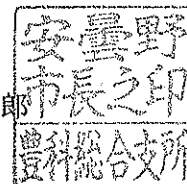 安曇野
市長之印
郎
豊科総合支所